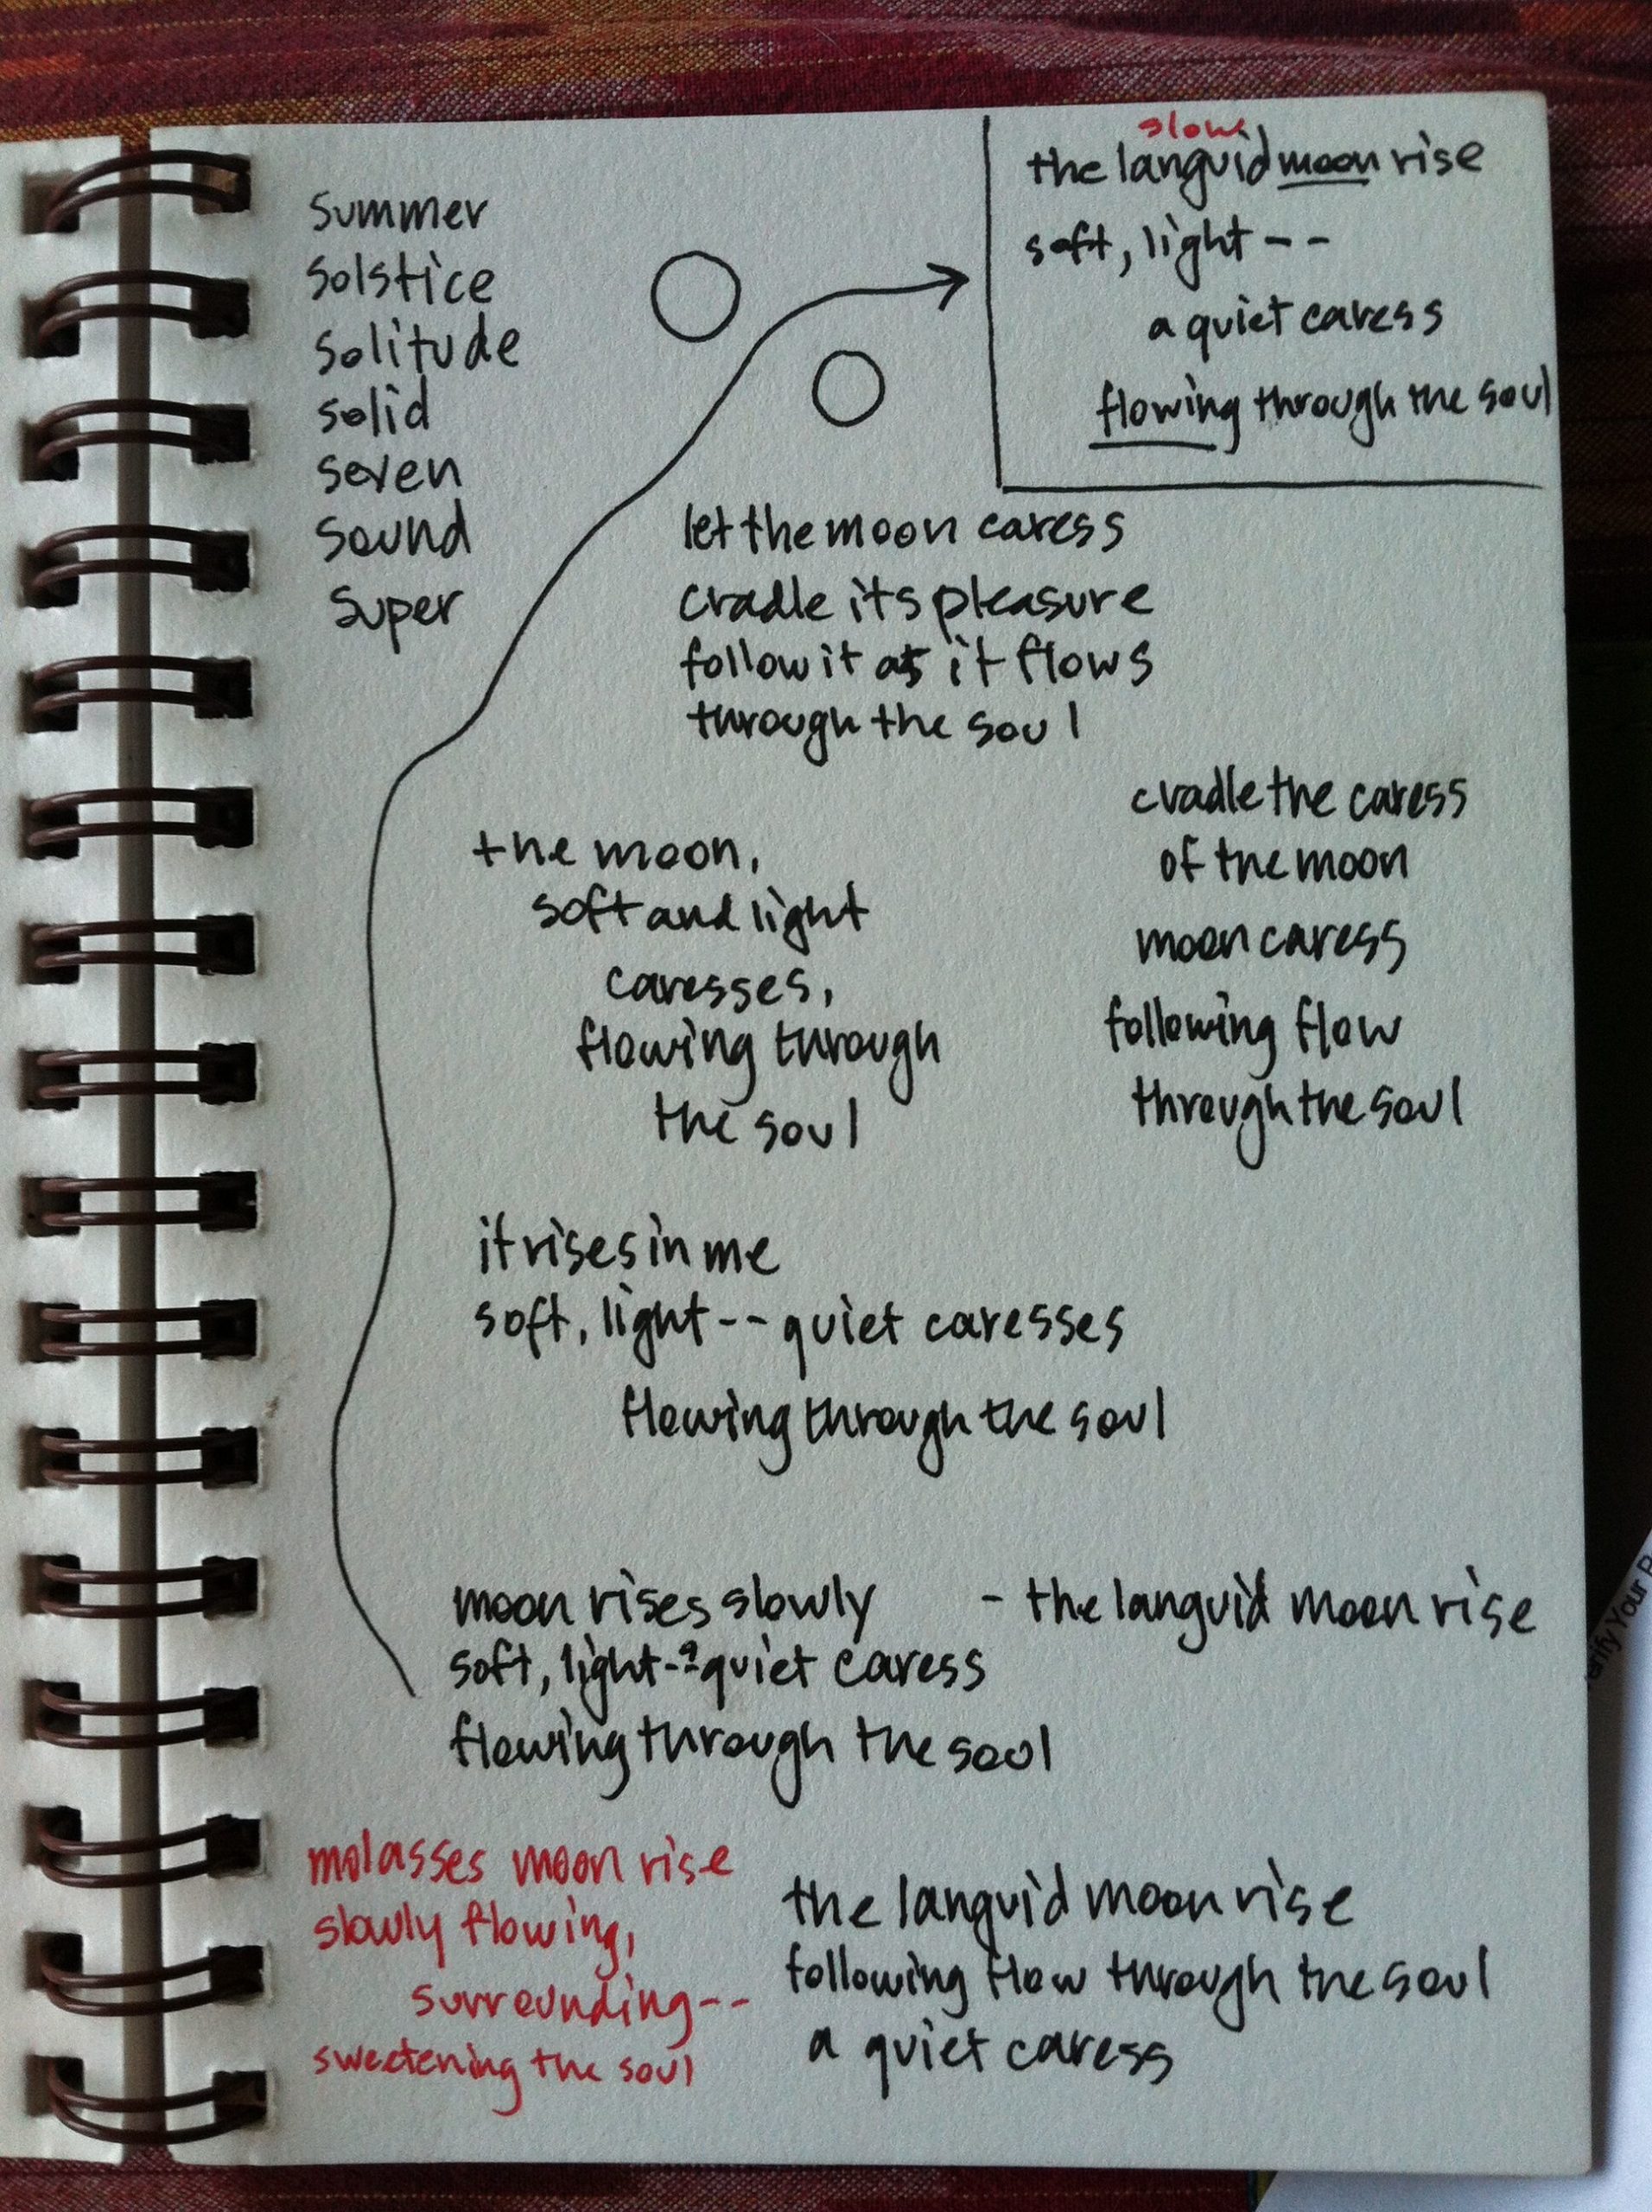 summer
solstice
solitude
solid
seven
sound
super
slow
the languid moon rise
soft, light--
a quiet caress
flowing through the soul
let the moon caress
cradle its pleasure
follow it as it flows
through the soul
the moon,
soft and light
caresses,
flowing through
the soul
cradle the caress
of the moon
moon caress
following flow
through the soul
it rises in me
soft, light--quiet caresses
flowing through the soul
moon rises slowly
- the languid moon rise
soft, light--quiet caress
flowing through the soul
molasses moon rise
slowly flowing,
surrounding--
sweetening the soul
the languid moon rise
following flow through the soul
a quiet caress
Your